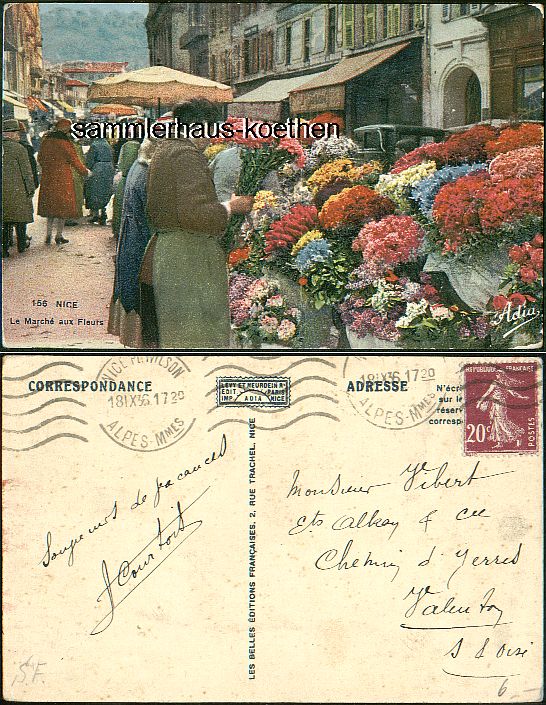 sammlerhaus-koethen
156 NICE
Le Marché aux Fleurs
Adia
CORRESPONDANCE
NICE Pl. WILSON
18 IX 36 1720
ALPES-MMES
LEVY ET NEURDEIN R.
EDIT. PARIS
IMP. ADIA NICE
ADRESSE
18 IX 36 1720
ALPES-MMES
N'écri
sur le
réserv
corresp
REPUBLIQUE FRANÇAISE
20c
POSTES
LES BELLES ÉDITIONS FRANÇAISES, 2, RUE TRACHEL, NICE
de vacances
J Courtois
Monsieur Vibert
Ets & Cie
Chemin d'Yerres
Valenton
S & Oise
SF.
6.-